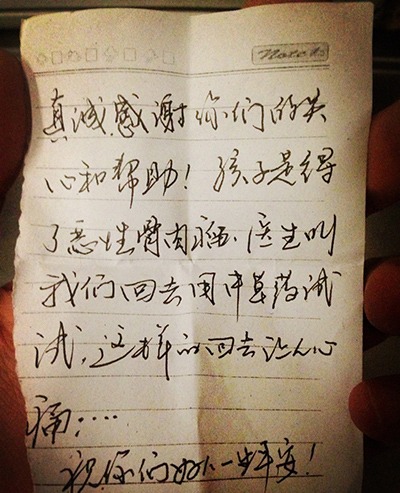 Notes
真诚感谢你们的关
心和帮助！孩子是得
了恶性骨肉瘤．医生叫
我们回去用中草药试
试，这样的回去让人心
痛：…
祝你们好人一生平安！